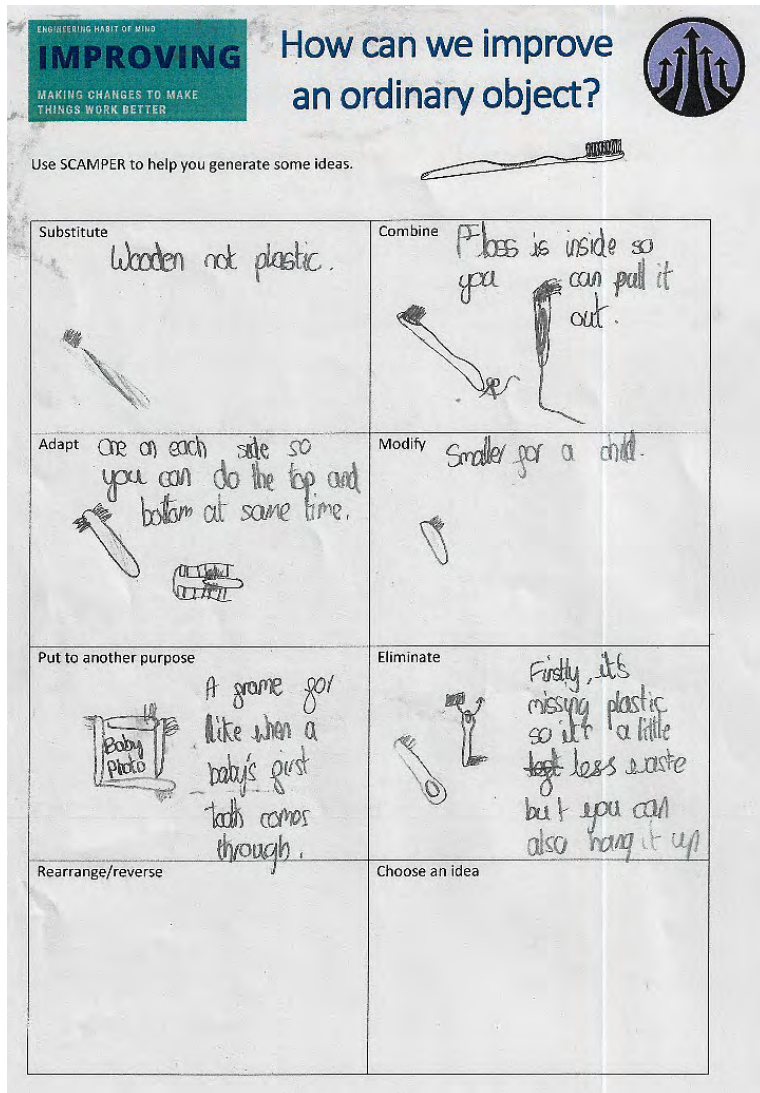 ENGINEERING HABIT OF MIND
IMPROVING
MAKING CHANGES TO MAKE
THINGS WORK BETTER
How can we improve
an ordinary object?
Use SCAMPER to help you generate some ideas.
Substitute
Wooden not plastic.
Combine
Floss is inside so
you can pull it
out.
Adapt
One on each side so
you can do the top and
bottom at same time.
Modify
Smaller for a child.
Put to another purpose
A frame for
like when a
baby's first
tooth comes
through.
Baby
Photo
Eliminate
Firstly, it's
missing plastic
so it's a little
less waste
but you can
also hang it up
Rearrange/reverse
Choose an idea